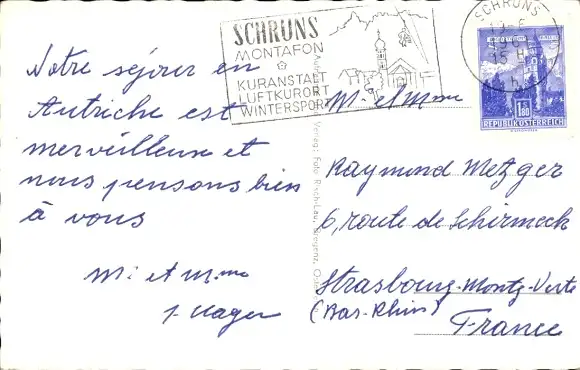 SCHRUNS
MONTAFON
KURANSTALT
LUFTKURORT
WINTERSPORT
SCHRUNS
1.80
REPUBLIK ÖSTERREICH
Notre séjour en
Autriche est
merveilleux et
nous pensons bien
à vous
M. et Mme
J. Hager
M. et Mme
Raymond Metzger
6, route de Schirmeck
Strasbourg-Montg-Verte
(Bas-Rhin)
France